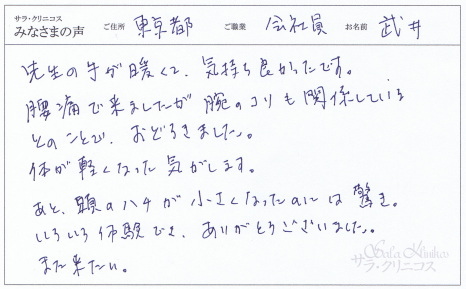 サラ・クリニコス
みなさまの声 ご住所 東京都 ご職業 会社員 お名前 武井
先生の手が暖くて、気持ち良かったです。
腰痛で来ましたが 腕のコリも関係している
とのことで、おどろきました。
体が軽くなった気がします。
あと、頭のハチが小さくなったのには驚き。
いろいろ体験でき、ありがとうございました。
また来たい。
Sala Klinikos
サラ・クリニコス